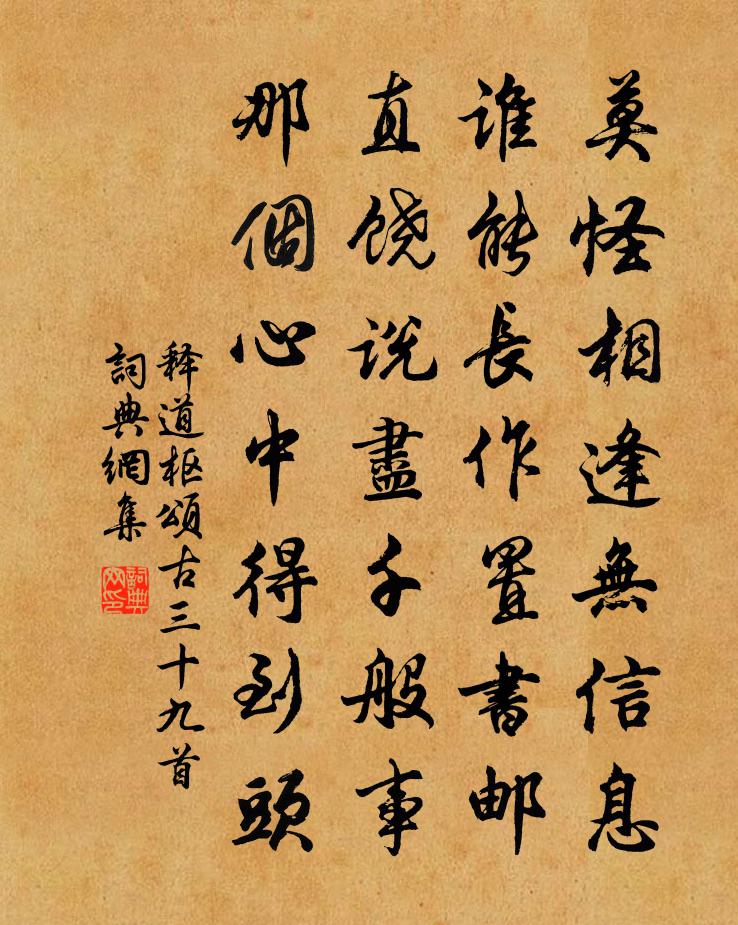 莫怪相逢無信息
谁能長作置書邮
直饶说盡千般事
那個心中得到頭
释道枢頌古三十九首
詞典網集
詞典网印